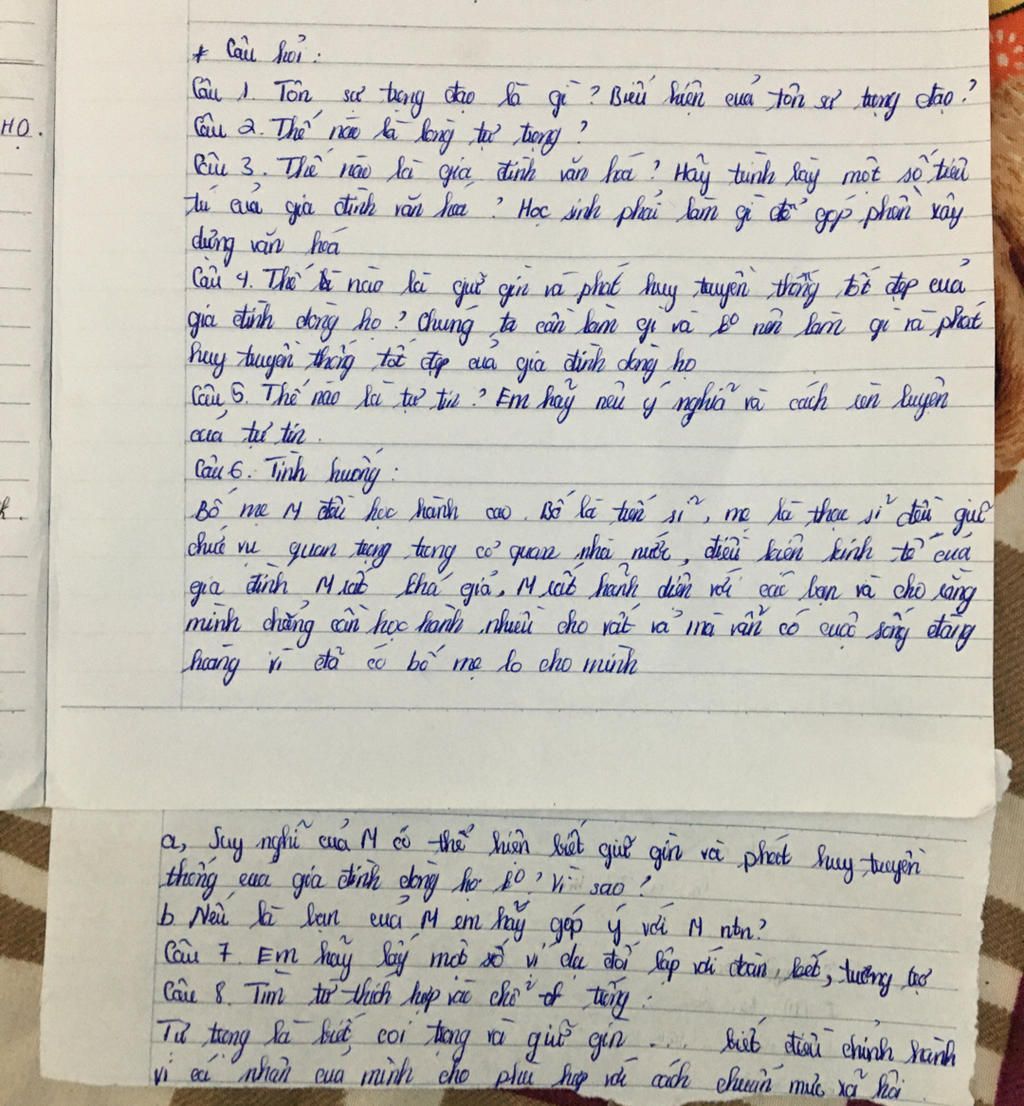 * Câu hỏi:
Câu 1. Tôn sư trọng đạo là gì? Biểu hiện của tôn sư trọng đạo?
HỌ.
Câu 2. Thế nào là lòng tự trọng?
Câu 3. Thế nào là gia đình văn hoá? Hãy trình bày một số tiêu
trí của gia đình văn hoá? Học sinh phải làm gì để góp phần xây
dựng văn hoá
Câu 4. Thế nào là giữ gìn và phát huy truyền thống tốt đẹp của
gia đình dòng họ? Chúng ta cần làm gì và ko nên làm gì và phát
huy truyền thống tốt đẹp của gia đình dòng họ
Câu 5. Thế nào là tự tin? Em hãy nêu ý nghĩa và cách rèn luyện
của tự tin.
Câu 6. Tình huống:
Bố mẹ M đều học hành cao. Bố là tiến sĩ, mẹ là thạc sĩ đều giữ
chức vụ quan trọng trong cơ quan nhà nước, điều kiện kinh tế của
gia đình M rất khá giả, M rất hãnh diện với các bạn và cho rằng
mình chẳng cần học hành nhiều cho vất vả mà vẫn có cuộc sống đàng
hoàng vì đã có bố mẹ lo cho mình
a, Suy nghĩ của M có thể hiện biết giữ gìn và phát huy truyền
thống của gia đình dòng họ ko? Vì sao?
b Nếu là bạn của M em hãy góp ý với M ntn?
Câu 7. Em hãy lấy một số ví dụ đối lập với đoàn kết, tương trợ
Câu 8. Tìm từ thích hợp vào chỗ trống:
Tự trọng là biết coi trọng và giữ gìn ... biết điều chỉnh hành
vi cá nhân của mình cho phù hợp với cách chuẩn mực xã hội.